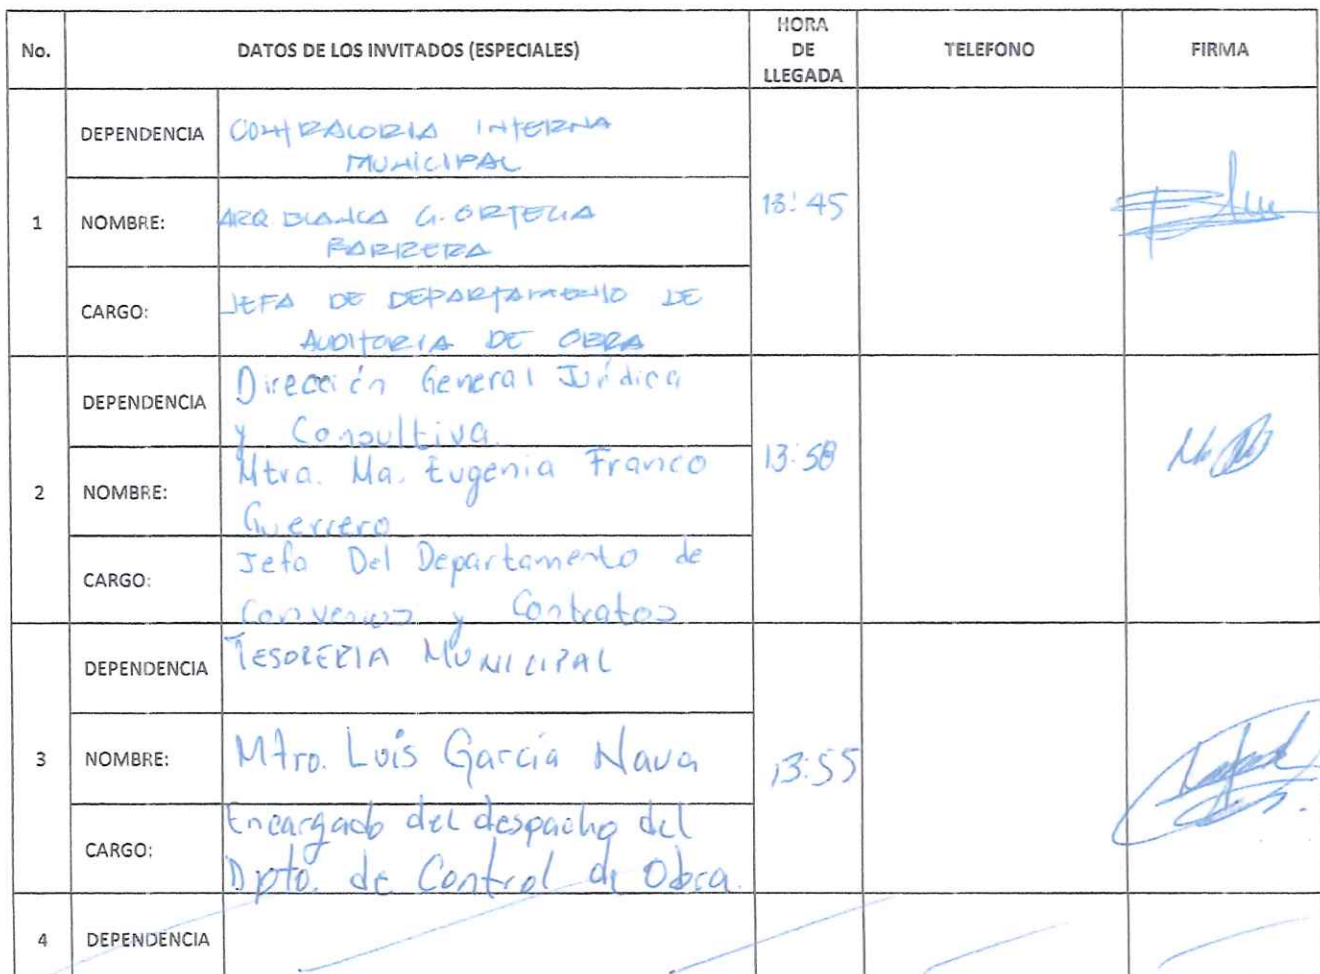 No. DATOS DE LOS INVITADOS (ESPECIALES) HORA DE LLEGADA TELEFONO FIRMA
1
DEPENDENCIA CONTRALORIA INTERNA
MUNICIPAL
NOMBRE: ARQ. BLANCA G. ORTEGA
BARRERA
13:45
CARGO: JEFA DE DEPARTAMENTO DE
AUDITORIA DE OBRA
2
DEPENDENCIA Dirección General Jurídica
y Consultiva.
NOMBRE: Mtra. Ma. Eugenia Franco
Guerrero
13:58
CARGO: Jefa Del Departamento de
Convenios y Contratos
3
DEPENDENCIA TESORERIA MUNICIPAL
NOMBRE: Mtro. Luis García Nava
13:55
CARGO: Encargado del despacho del
Dpto. de Control de Obra.
4 DEPENDENCIA